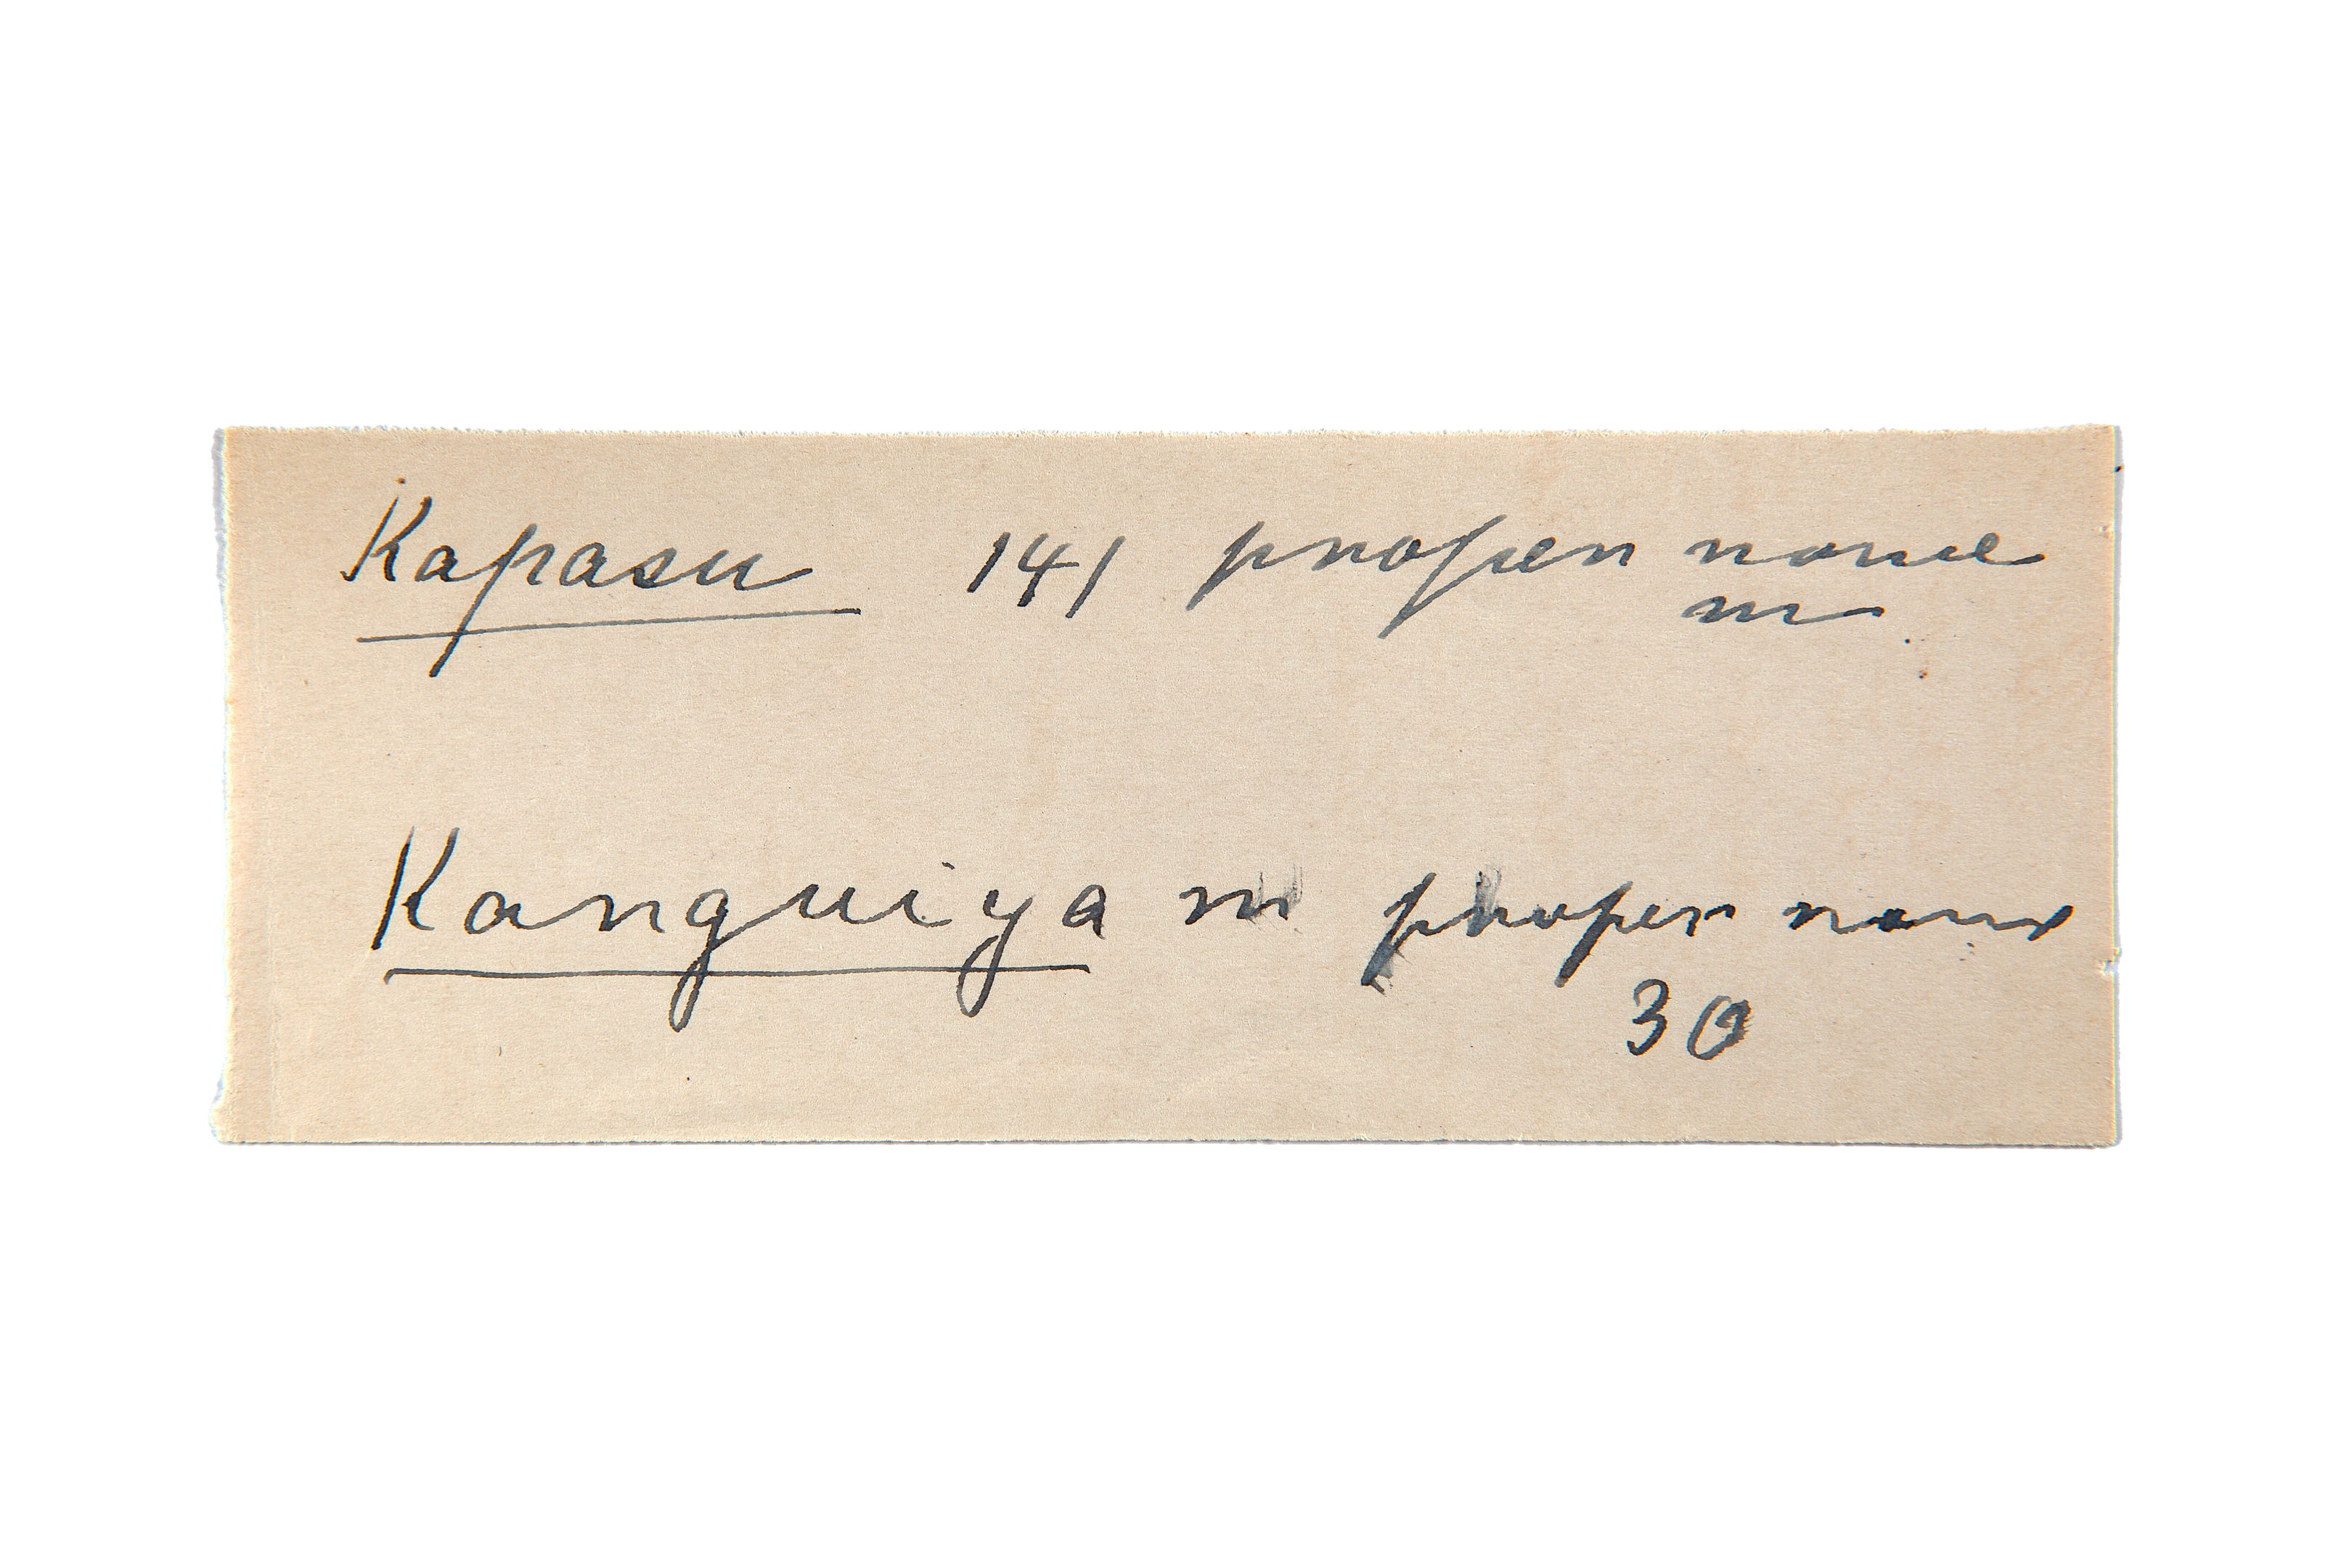 Kapasu 141 proper name
m
Kanguiya m proper name
30